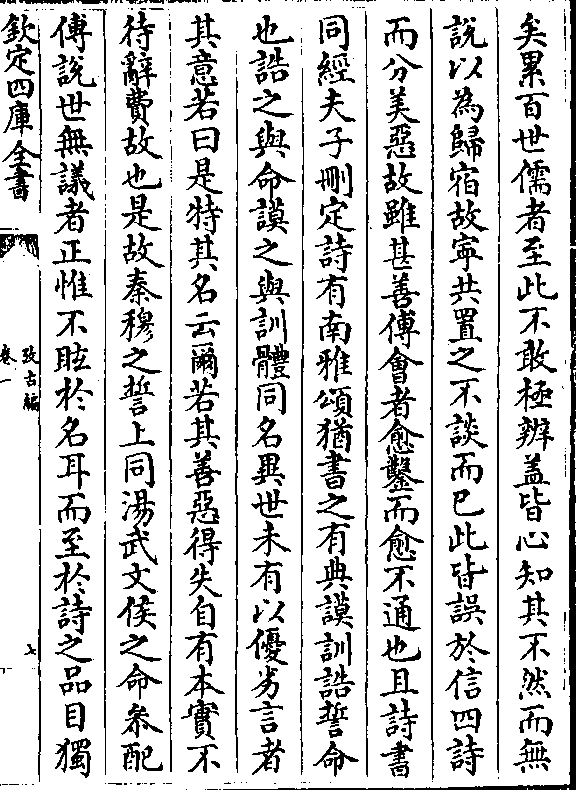 矣累百世儒者至此不敢極辨盖皆心知其不然而無
說以為歸宿故寧共置之不談而已此皆誤於信四詩
而分美惡故雖甚善傅會者愈鑿而愈不通也且詩書
同經夫子刪定詩有南雅頌猶書之有典謨訓誥誓命
也誥之與命謨之與訓體同名異世未有以優劣言者
其意若曰是特其名云爾若其善惡得失自有本實不
待辭費故也是故秦穆之誓上同湯武文侯之命參配
傅說世無議者正惟不眩於名耳而至於詩之品目獨
欽定四庫全書
攷古編
卷一
七